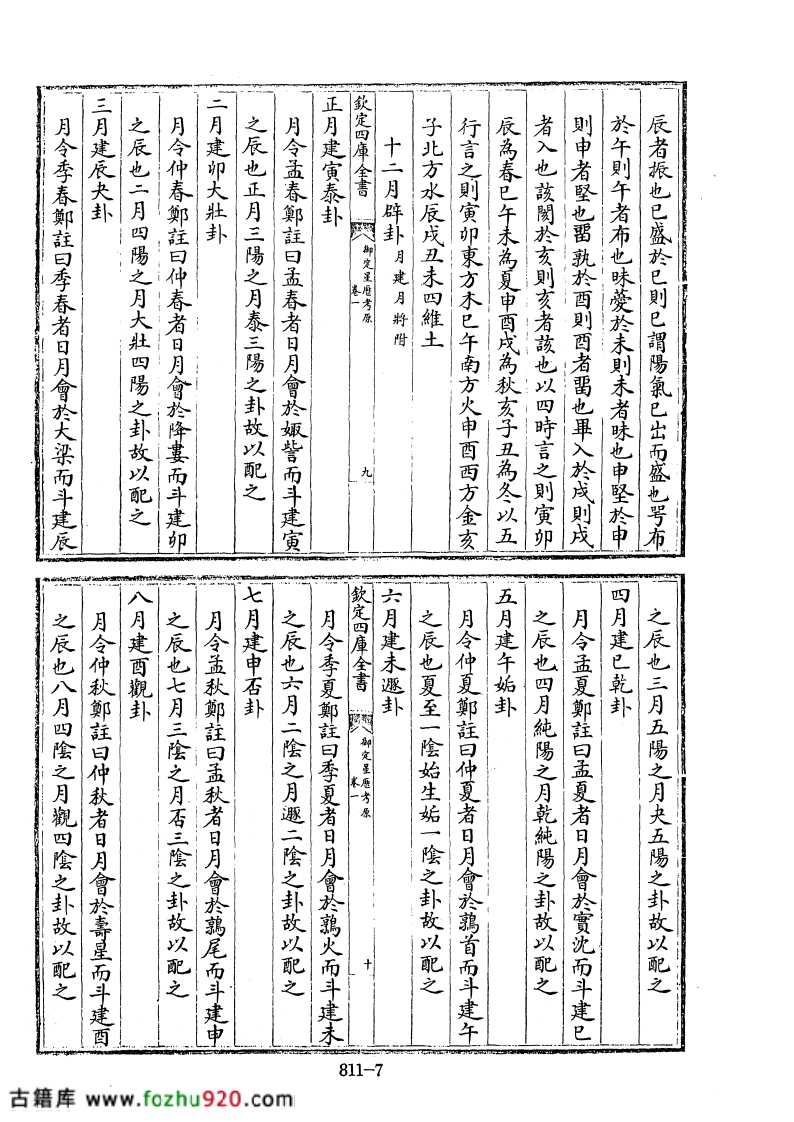 辰者振也已盛於巳則巳謂陽氣已出而盛也咢布
於午則午者布也昧薆於未則未者昧也申堅於申
則申者堅也畱孰於酉則酉者畱也畢入於戌則戌
者入也該閡於亥則亥者該也以四時言之則寅卯
辰為春巳午未為夏申酉戌為秋亥子丑為冬以五
行言之則寅卯東方木巳午南方火申酉西方金亥
子北方水辰戌丑未四維土
十二月辟卦月建月將附
欽定四庫全書
御定星厯考原
卷一
九
正月建寅泰卦
月令孟春鄭註曰孟春者日月會於娵訾而斗建寅
之辰也正月三陽之月泰三陽之卦故以配之
二月建卯大壯卦
月令仲春鄭註曰仲春者日月會於降婁而斗建卯
之辰也二月四陽之月大壯四陽之卦故以配之
三月建辰夬卦
月令季春鄭註曰季春者日月會於大梁而斗建辰
之辰也三月五陽之月夬五陽之卦故以配之
四月建巳乾卦
月令孟夏鄭註曰孟夏者日月會於實沈而斗建巳
之辰也四月純陽之月乾純陽之卦故以配之
五月建午姤卦
月令仲夏鄭註曰仲夏者日月會於鶉首而斗建午
之辰也夏至一陰始生姤一陰之卦故以配之
六月建未遯卦
欽定四庫全書
御定星厯考原
卷一
十
月令季夏鄭註曰季夏者日月會於鶉火而斗建未
之辰也六月二陰之月遯二陰之卦故以配之
七月建申否卦
月令孟秋鄭註曰孟秋者日月會於鶉尾而斗建申
之辰也七月三陰之月否三陰之卦故以配之
八月建酉觀卦
月令仲秋鄭註曰仲秋者日月會於壽星而斗建酉
之辰也八月四陰之月觀四陰之卦故以配之
811-7
古籍库 www.fozhu920.com